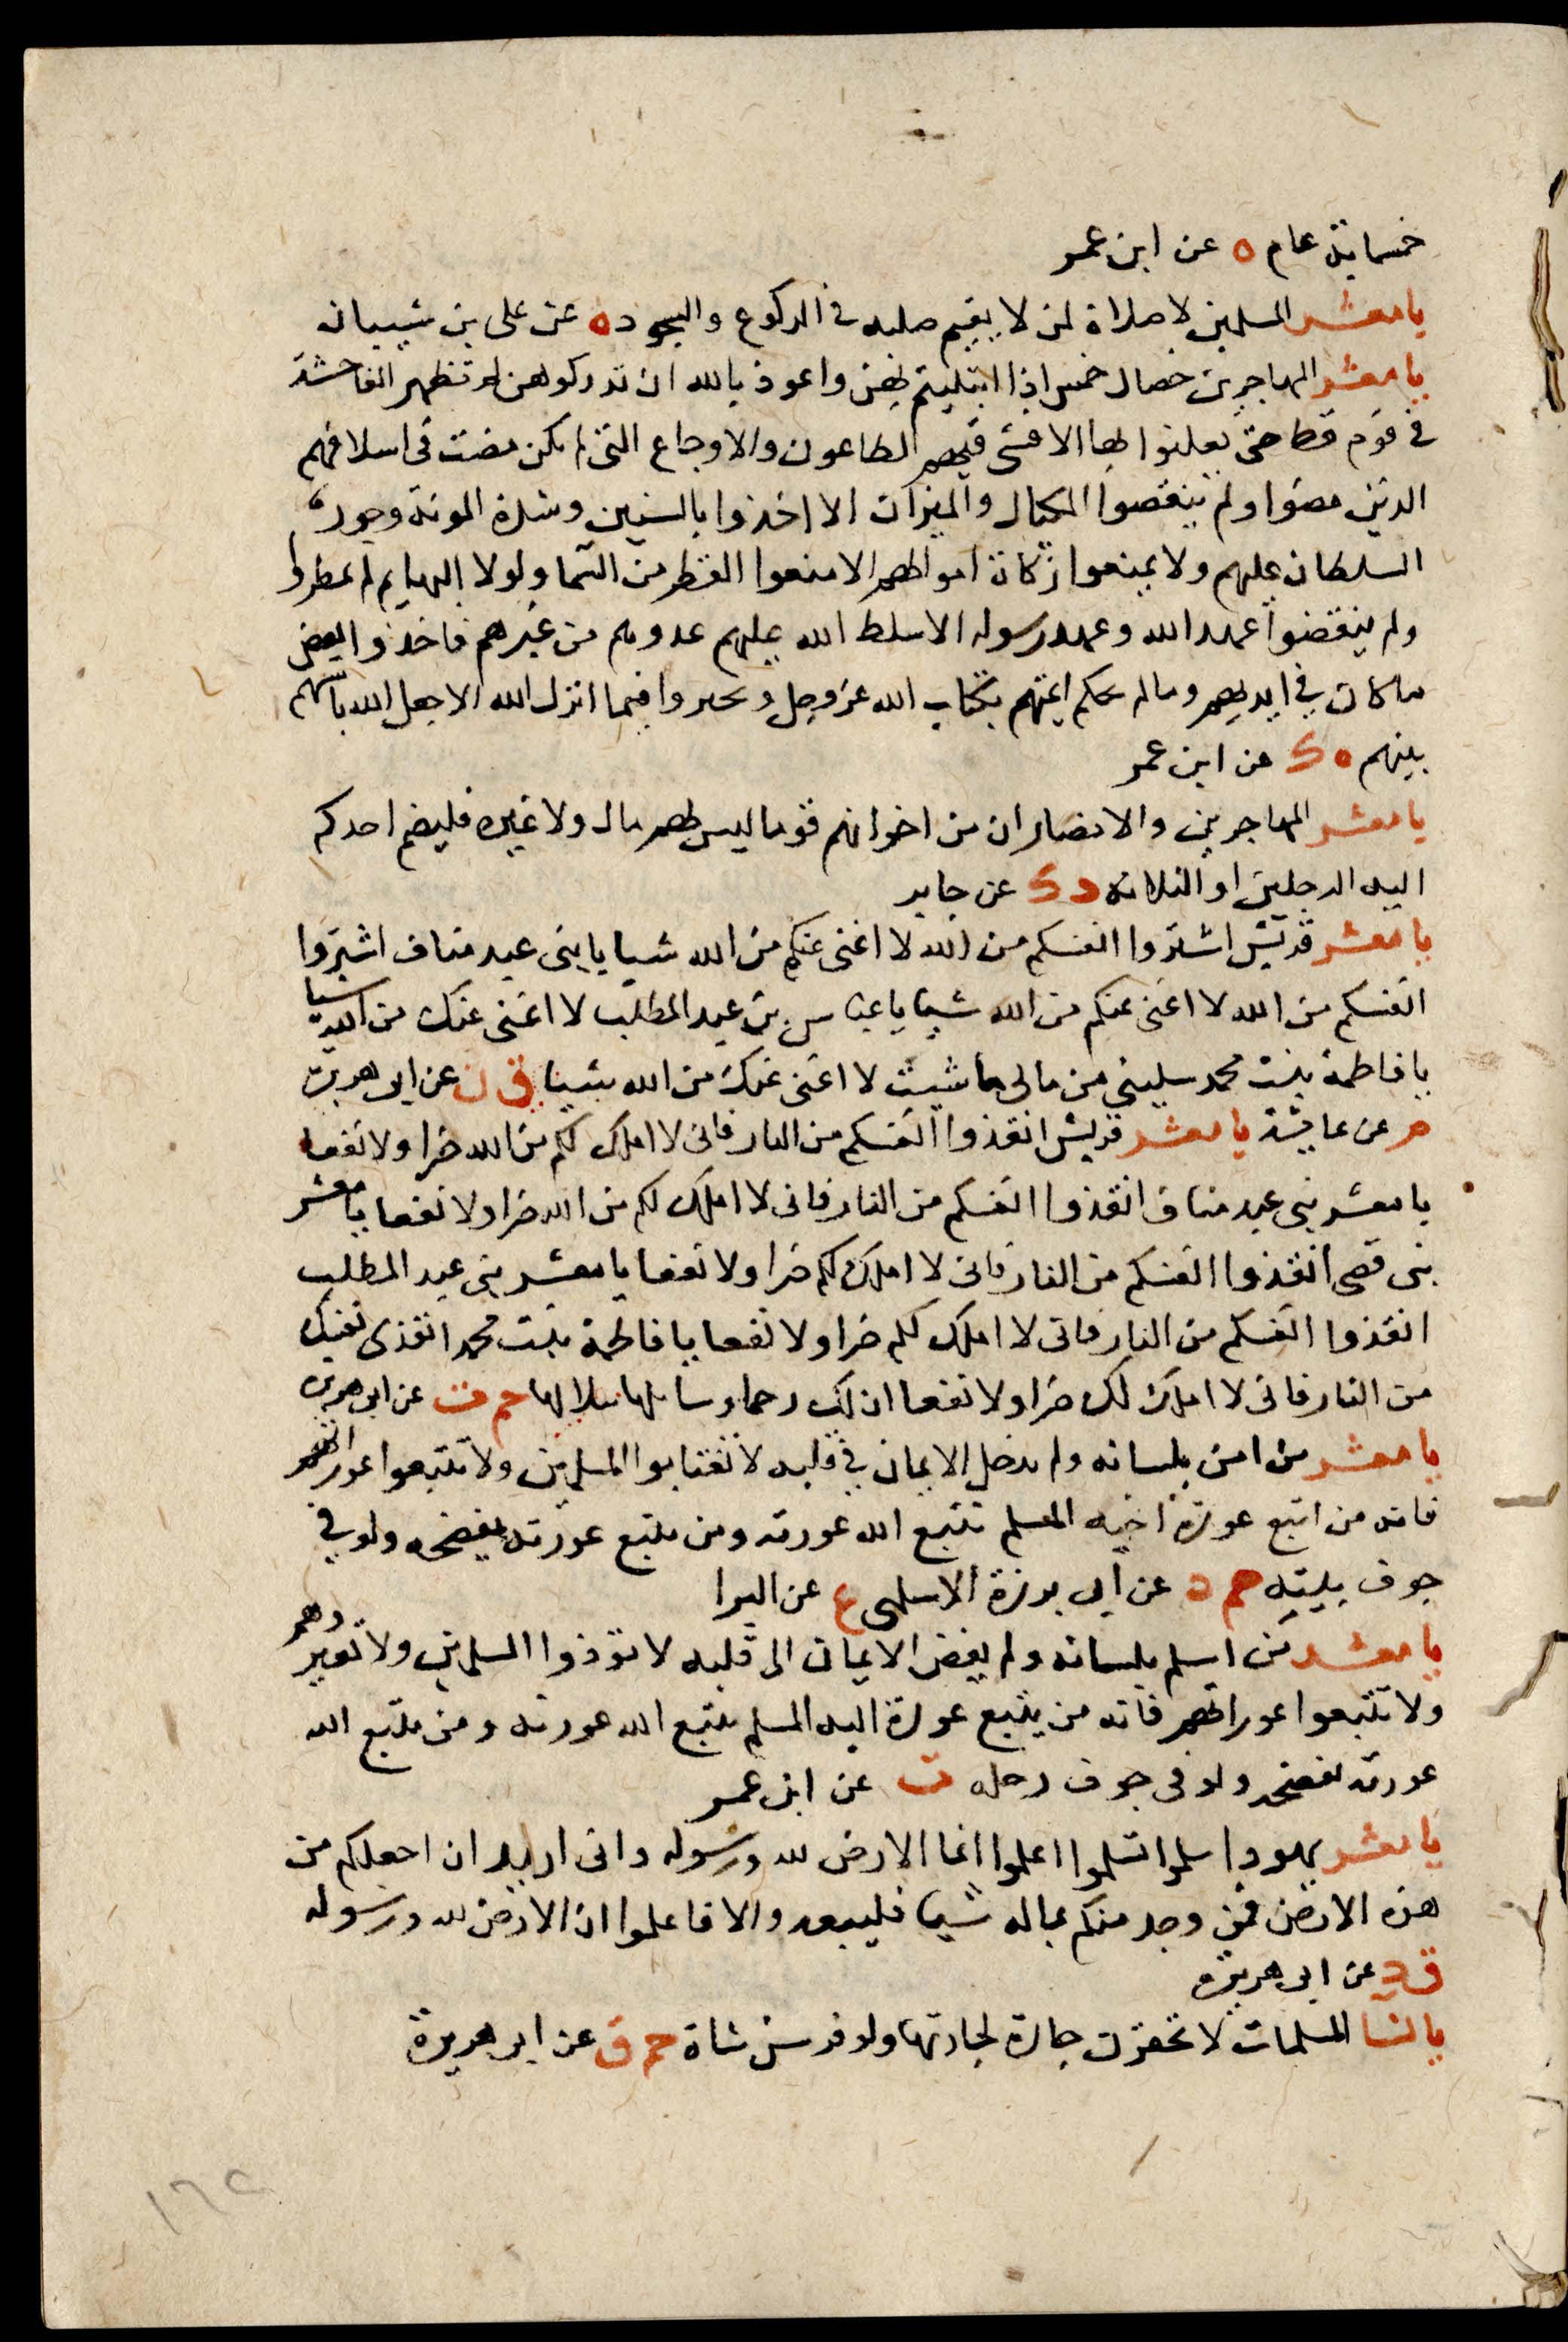 خمسماية عام ه عن ابن عمر
يا معشر المسلمين لا صلاة لمن لا يقيم صلبه في الركوع والسجود ه عن على بن شيبان
يا معشر المهاجرين خصال خمس اذا ابتليتم بهن واعوذ بالله ان تدركوهن لم تظهر الفاحشة
في قوم قط حتى يعلنوا بها الا فشى فيهم الطاعون والاوجاع التى لم تكن مضت في اسلافهم
الذين مضوا ولم ينقصوا المكيال والميزان الا اخذوا بالسنين وشدة المونة وجور
السلطان عليهم ولا يمنعوا زكاة اموالهم الا منعوا القطر من السما ولولا البهايم لم يمطروا
ولم ينقضوا عهد الله وعهد رسوله الا سلط الله عليهم عدوهم من غيرهم فاخذوا بعض
ما كان في ايديهم وما لم تحكم ايمتهم بكتاب الله عز وجل و فيما انزل الله الا جعل الله باسهم
بينهم ه ك عن ابن عمر
يا معشر المهاجرين والانصار ان من اخوانهم قوما ليس لهم مال ولا فليضم احدكم
اليه الرجلين او الثلاثة د ك عن جابر
يا معشر قريش اشتروا انفسكم من الله لا اغنى عنكم من الله شيا يا بنى عبد مناف اشتروا
انفسكم من الله لا اغنى عنكم من الله شيا يا عباس بن عبد المطلب لا اغنى عنك من الله شيا
يا فاطمة بنت محمد سلينى من مالى ما شيت لا اغنى عنك من الله شيا ق ن عن ابى هريرة
م عن عايشة يا معشر قريش انقذوا انفسكم من النار فانى لا املك لكم من الله ضرا ولا نفعا
يا معشر بنى عبد مناف انقذوا انفسكم من النار فانى لا املك لكم من الله ضرا ولا نفعا يا معشر
بنى قصى انقذوا انفسكم من النار فانى لا املك لكم ضرا ولا نفعا يا معشر بنى عبد المطلب
انقذوا انفسكم من النار فانى لا املك لكم ضرا ولا نفعا يا فاطمة بنت محمد انقذى نفسك
من النار فانى لا املك لك ضرا ولا نفعا ان لك رحما وسابلها ببلالها حم ت عن ابى هريرة
يا معشر من امن بلسانه ولم يدخل الايمان في قلبه لا تغتابوا المسلمين ولا تتبعوا عوراتهم
فانه من اتبع عورة اخيه المسلم تتبع الله عورته ومن يتبع عورته يفضحه ولو في
جوف بيته حم د عن ابى برزة الاسلمى ع عن البرا
يا معشر من اسلم بلسانه ولم يفض الايمان الى قلبه لا توذوا المسلمين ولا تعيروهم
ولا تتبعوا عوراتهم فانه من يتبع عورة اخيه المسلم يتبع الله عورته ومن يتبع الله
عورته يفضحه ولو فى جوف رحله ت عن ابن عمر
يا معشر يهود اسلموا تسلموا اعلموا انما الارض لله ورسوله وانى اريد ان اجليكم من
هذه الارض فمن وجد منكم بماله شيا فليبعه والا فاعلموا ان الارض لله ورسوله
ق د عن ابى هريرة
يا نسا المسلمات لا تحقرن جارة لجارتها ولو فرسن شاة حم ق عن ابى هريرة
١٦٢